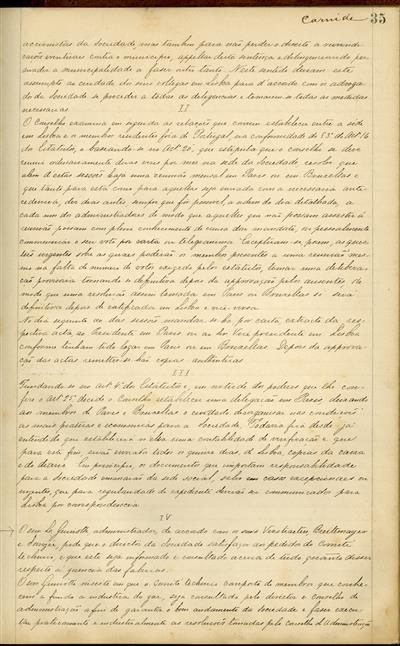 Carnide 35
accionistas da Sociedade, mas tambem para não perder o direito a
contra o municipio, appellar desta sentença e
a municipalidade a fazer outro tanto. Neste sentido este
assumpto ao cuidado dos seus collegas em Lisboa para d'accordo com os
da Sociedade se proceder a todas as delegencias e tomarem-se todas as medidas
necessarias.
II
O Conselho examina em seguida as relações que convem estabelecer entre a séde
em Lisboa e os membros residentes fóra de Portugal, na conformidade do § 3º do Art. 16
dos Estatutos, e baseando-se no Art. 20, que estipula que o conselho se deve
reunir ordinariamente duas vezes por mez na séde da Sociedade, resolve que
alem d'estas sessões haja uma reunião mensal em Paris ou em Bruxellas e
que tanto para esta como para aquellas seja enviada com a necessaria ante-
cedencia, dez dias antes sempre que for possivel, a ordem do dia detalhada, a
cada um dos administradores de modo que aquelles que não possam assistir á
reunião possam com pleno conhecimento de causa dar mandato, ou pessoalmente
communicar o seu voto por carta ou telegramma. Exceptuam-se, porem, os
urgentes sobre as quaes poderão os membros presentes a uma reunião mes-
mo na falta de numero de votos exigido pelos estatutos, tomar uma delibera-
ção provisoria tornando-se definitiva depois da approvação pelos ausentes. De
modo que uma resolução assim tomada em Paris ou Bruxellas só será
definitiva depois de ratificada em Lisboa e vice-versa.
No dia seguinte ao das sessões mandar-se-ha, por carta, extracto da res-
pectiva acta, ao Presidente em Paris ou ao Snr. Vice presidente em Lisboa
conforme tenham tido logar em Paris ou em Bruxellas. Depois da approva-
ção das actas remetter-se-hão copias authenticas.
III
Fundando-se no Art. 4º dos Estatutos e, em virtude dos poderes que lhe con-
fere o Art. 25º decide o Conselho estabelecer uma delegação em Paris, deixando
aos membros de Paris e Bruxellas o cuidado d'organisar nas condições
as mais praticas e economicas para a Sociedade. Todavia fica desde já
entendido que estabelecerá n'ella uma contabilidade de verificação e que
para este fim serão enviados todos os quinze dias, de Lisboa, copias da caixa
e do diario. Em principio, os documentos que importam responsabilidade
para a Sociedade emanarão da séde social, salvo em casos excepcionaes ou
urgentes, que para regularidade de expediente deverão ser communicados para
Lisboa por correspondencia.
IV
O snr. administrador, de accordo com os snrs.
e pede que o director da Sociedade satisfaça ao pedido do Comité
technico, e que este seja informado e consultado acerca de tudo quanto disser
respeito á gerencia das fabricas.
O snr. insiste em que o Comité technico composto de membros que conhe-
cem a fundo a industria do gaz, seja consultado pelo director e conselho de
administração a fim de garantir o bom andamento da Sociedade e fazer execu-
tar praticamente e industrialmente as resoluções tomadas pelo conselho d'Administração